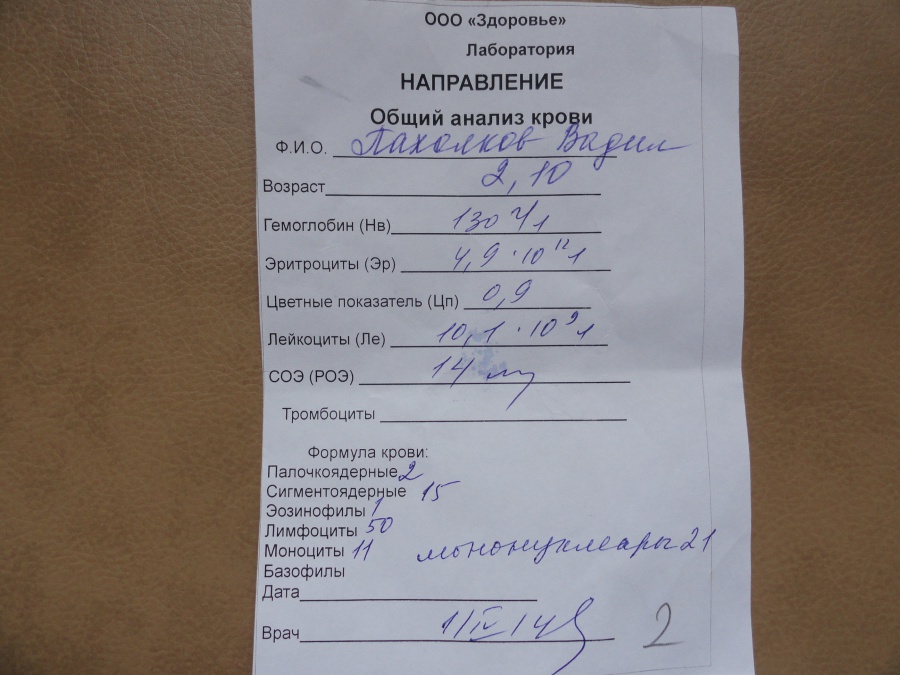 ООО «Здоровье»
Лаборатория
НАПРАВЛЕНИЕ
Общий анализ крови
Ф.И.О. Пахолков Вадим
Возраст 2,10
Гемоглобин (Нв) 130 г/л
Эритроциты (Эр) 4,9·10¹² л
Цветные показатель (Цп) 0,9
Лейкоциты (Ле) 10,1·10⁹ л
СОЭ (РОЭ) 14
Тромбоциты
Формула крови:
Палочкоядерные 2
Сигментоядерные 15
Эозинофилы 1
Лимфоциты 50
Моноциты 11 мононуклеары 21
Базофилы
Дата
Врач 1/IV 14 2